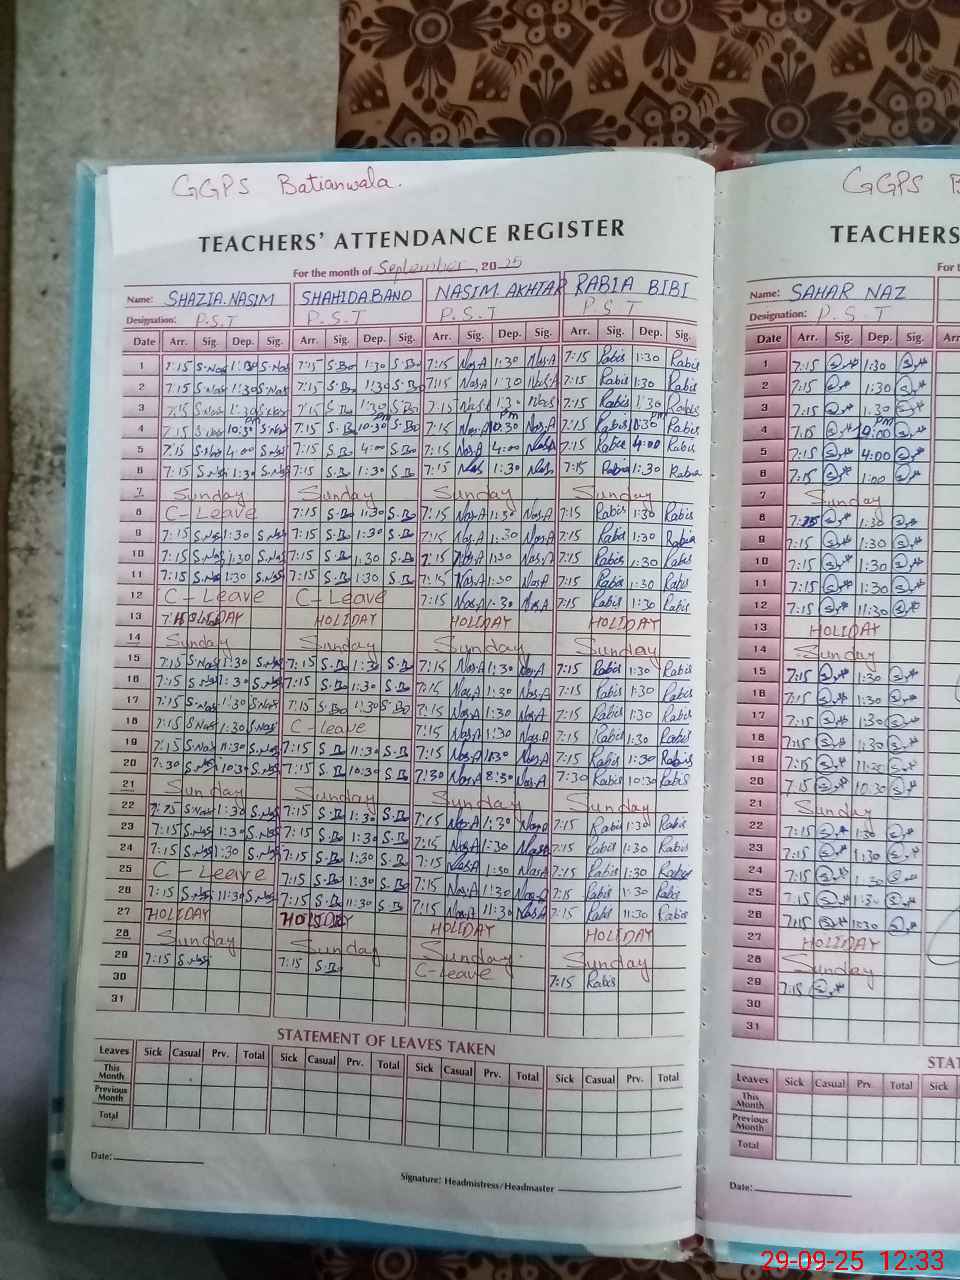 GGPS Batianwala.
TEACHERS' ATTENDANCE REGISTER
For the month of September, 2025
Name: SHAZIA.NASIM SHAHIDA.BANO NASIM.AKHTAR RABIA BIBI
Designation: P.S.T P.S.T P.S.T P.S.T
Date Arr. Sig. Dep. Sig. Arr. Sig. Dep. Sig. Arr. Sig. Dep. Sig. Arr. Sig. Dep. Sig.
1 7:15 S.Nas 1:30 S.Nas 7:15 S.Bo 1:30 S.Bo 7:15 Nas.A 1:30 Nas.A 7:15 Rabis 1:30 Rabis
2 7:15 S.Nas 1:30 S.Nas 7:15 S.Bo 1:30 S.Bo 7:15 Nas.A 1:30 Nas.A 7:15 Rabis 1:30 Rabis
3 7:15 S.Nas 1:30 S.Nas 7:15 S.Bo 1:30 S.Bo 7:15 Nas.A 1:30 7:15 Rabis 1:30 Rabis
4 7:15 S.Nas 10:30 pm S.Nas 7:15 S.Bo 10:30 pm S.Bo 7:15 Nas.A 10:30 pm Nas.A 7:15 Rabis pm Rabis
5 7:15 S.Nas 4:00 S.Nas 7:15 S.Bo 4:00 S.Bo 7:15 Nas.A 4:00 7:15 Rabis 4:00 Rabis
6 7:15 S.Nas 1:30 S.Nas 7:15 S.Bo 1:30 S.Bo 7:15 1:30 7:15 Rabia 1:30 Rabia
7 Sunday Sunday Sunday Sunday
8 C-Leave 7:15 S.Bo 1:30 S.Bo 7:15 Nas.A 1:30 Nas.A 7:15 Rabis 1:30 Rabis
9 7:15 S.Nas 1:30 S.Nas 7:15 S.Bo 1:30 S.Bo 7:15 Nas.A 1:30 Nas.A 7:15 Rabis 1:30 Rabia
10 7:15 S.Nas 1:30 S.Nas 7:15 S.Bo 1:30 S.Bo 7:15 Nas.A 1:30 Nas.A 7:15 Rabis 1:30 Rabis
11 7:15 S.Nas 1:30 S.Nas 7:15 S.Bo 1:30 S.Bo 7:15 Nas.A 1:30 Nas.A 7:15 Rabis 1:30 Rabis
12 C-Leave C-Leave 7:15 Nas.A 1:30 Nas.A 7:15 Rabis 1:30 Rabis
13 HOLIDAY HOLIDAY HOLIDAY HOLIDAY
14 Sunday Sunday Sunday Sunday
15 7:15 S.Nas 1:30 S.Nas 7:15 S.Bo 1:30 S.Bo 7:15 Nas.A 1:30 Nas.A 7:15 Rabis 1:30 Rabis
16 7:15 S.Nas 1:30 S.Nas 7:15 S.Bo 1:30 S.Bo 7:15 Nas.A 1:30 Nas.A 7:15 Rabis 1:30 Rabis
17 7:15 S.Nas 1:30 S.Nas 7:15 S.Bo 1:30 S.Bo 7:15 Nas.A 1:30 Nas.A 7:15 Rabis 1:30 Rabis
18 7:15 S.Nas 1:30 S.Nas C-leave 7:15 Nas.A 1:30 Nas.A 7:15 Rabis 1:30 Rabis
19 7:15 S.Nas 11:30 S.Nas 7:15 S.B 11:30 S.B 7:15 Nas.A Nas.A 7:15 Rabis 1:30 Rabis
20 7:30 S.Nas 10:30 S.Nas 7:15 S.B 10:30 S.B 7:30 Nas.A 8:30 Nas.A 7:30 Rabis 10:30 Rabis
21 Sunday Sunday Sunday Sunday
22 7:15 S.Nas 1:30 S.Nas 7:15 S.Bo 1:30 S.Bo 7:15 Nas.A 1:30 7:15 Rabis 1:30 Rabis
23 7:15 S.Nas 1:30 S.Nas 7:15 S.Bo 1:30 S.Bo 7:15 Nas.A 1:30 7:15 Rabis 1:30 Rabis
24 7:15 S.Nas 1:30 S.Nas 7:15 S.Bo 1:30 S.Bo 7:15 Nas.A 1:30 Nas.A 7:15 Rabis 1:30 Rabis
25 C-Leave 7:15 S.Bo 1:30 S.Bo 7:15 Nas.A 1:30 7:15 Rabis 1:30 Rabis
26 7:15 S.Nas 11:30 S.Nas 7:15 S.Bo 11:30 S.B 7:15 Nas.A 11:30 Nas.A 7:15 Rabis 11:30 Rabis
27 HOLIDAY HOLIDAY HOLIDAY HOLIDAY
28 Sunday Sunday Sunday. Sunday
29 7:15 S.Nas 7:15 S.Bo C-Leave 7:15 Rabis
30
31
STATEMENT OF LEAVES TAKEN
Leaves Sick Casual Prv. Total Sick Casual Prv. Total Sick Casual Prv. Total Sick Casual Prv. Total
This Month
Previous Month
Total
Date:
Signature: Headmistress/Headmaster
GGPS B
TEACHERS
For t
Name: SAHAR NAZ
Designation: P.S.T
Date Arr. Sig. Dep. Sig. Arr
1 7:15 1:30
2 7:15 1:30
3 7:15 1:30
4 7:15 pm
5 7:15 4:00
6 7:15 1:00
7 Sunday
8 1:30
9 7:15 1:30
10 7:15 1:30
11 7:15 1:30
12 7:15 11:30
13 HOLIDAY
14 Sunday
15 7:15 1:30
16 7:15 1:30
17 7:15 1:30
18 7:15 1:30
19 7:15
20 7:15 10:30
21 Sunday
22 7:15 1:30
23 7:15 1:30
24 7:15 1:30
25 7:15
26 7:15
27 HOLIDAY
28 Sunday
29 7:15
30
31
STAT
Leaves Sick Casual Prv. Total Sick
This Month
Previous Month
Total
Date:
29-09-25 12:33